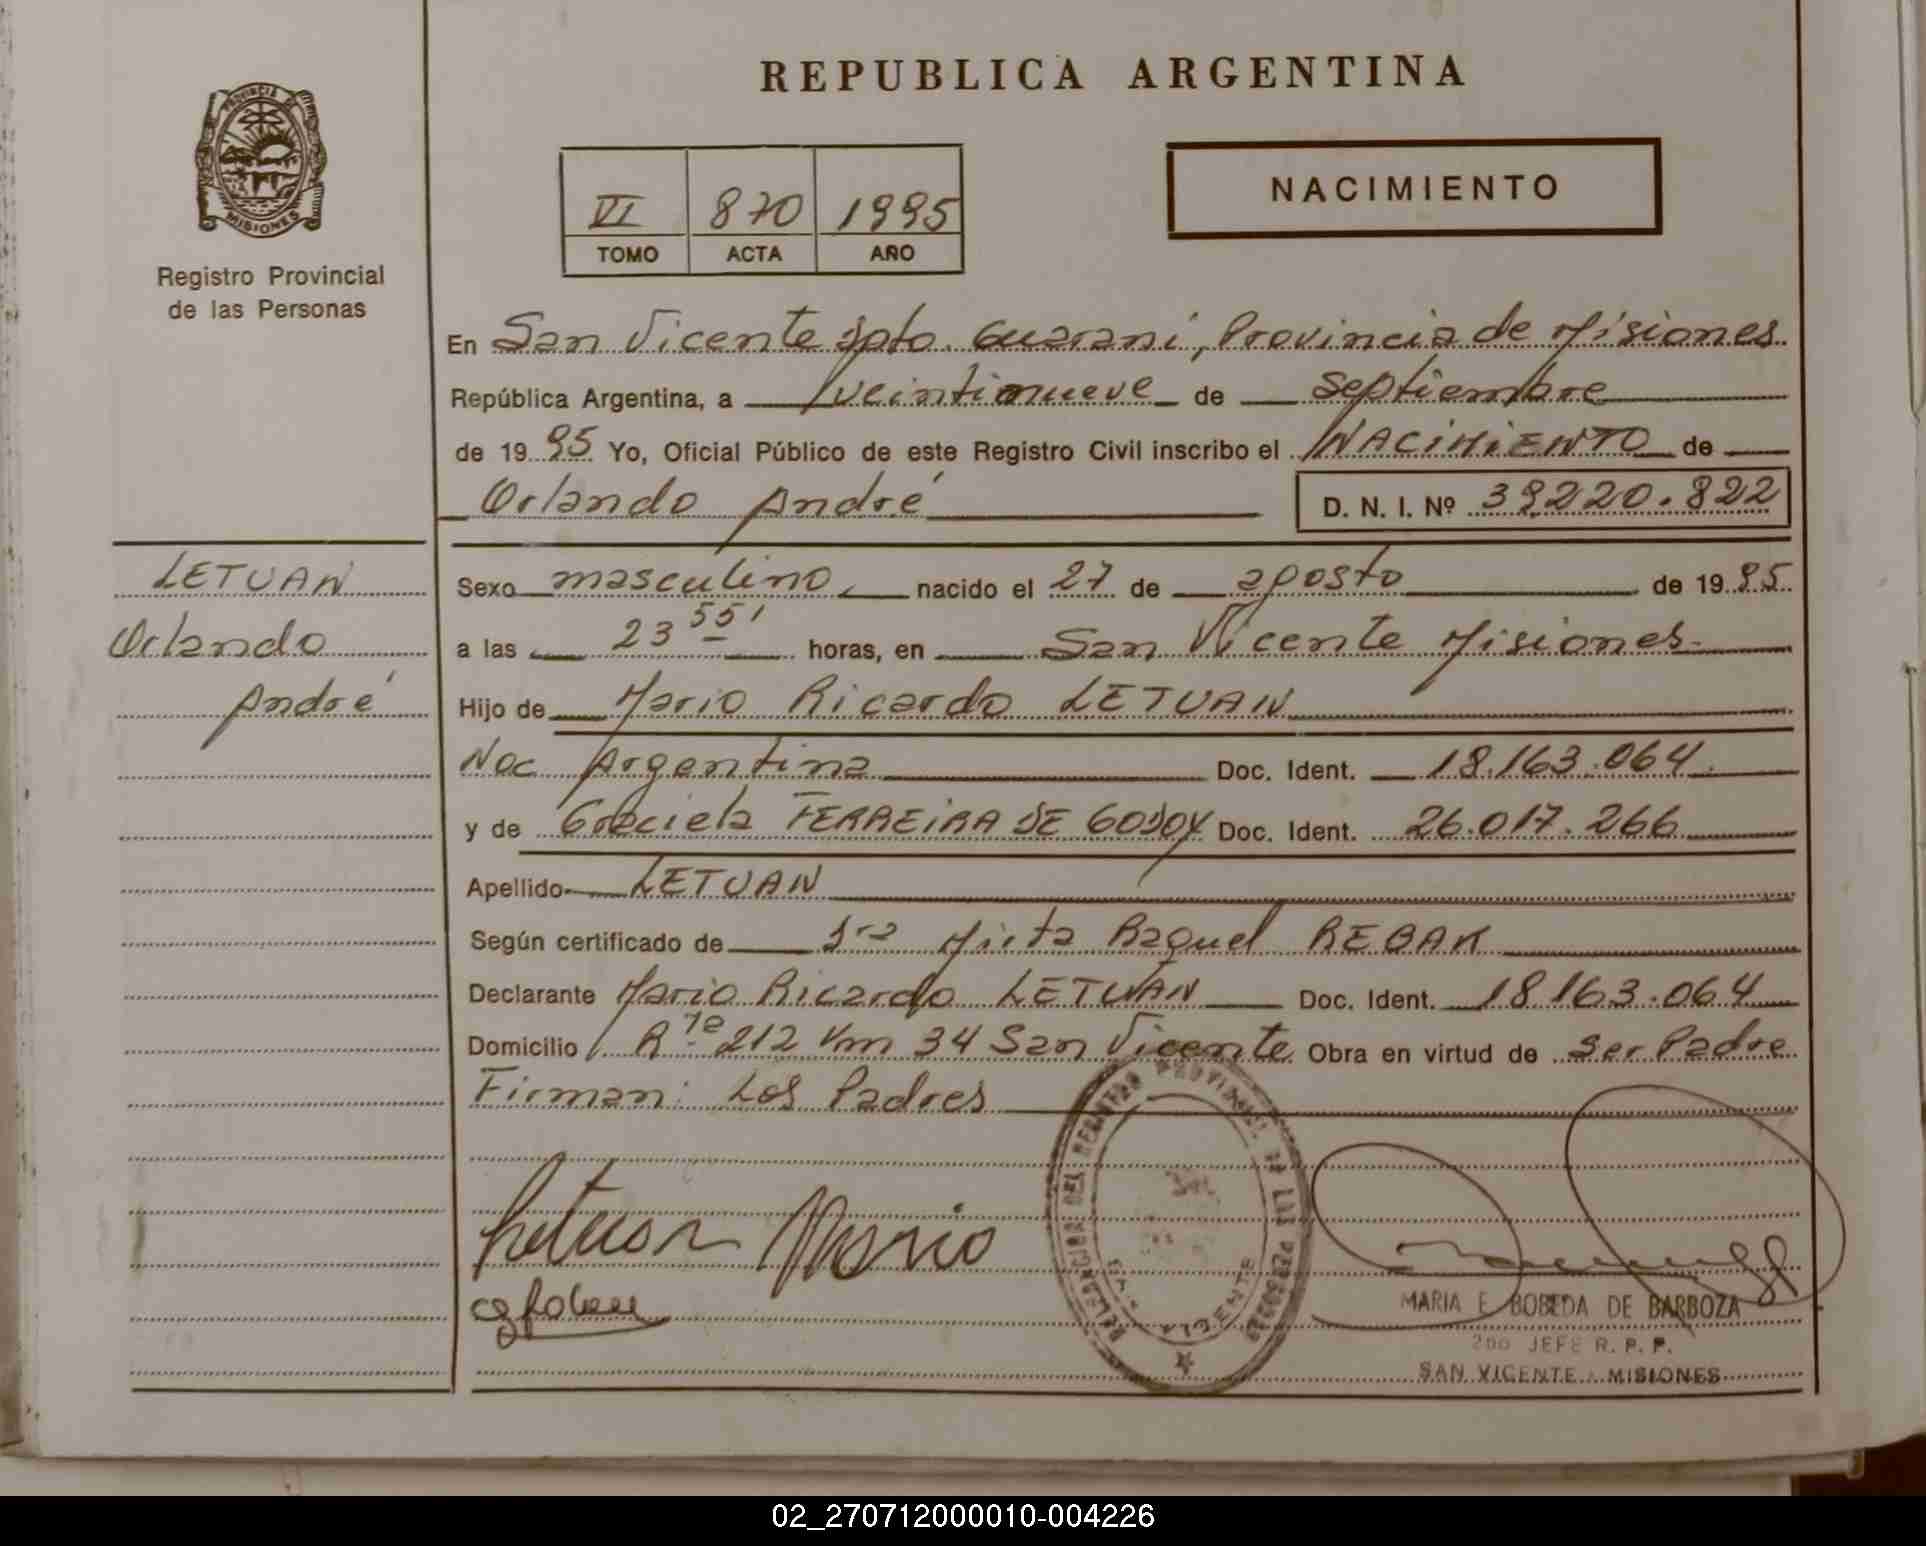 REPUBLICA ARGENTINA
PROVINCIA DE
MISIONES
Registro Provincial
de las Personas
VI 870 1995
TOMO ACTA AÑO
NACIMIENTO
En San Vicente Dpto. Guaraní, Provincia de Misiones
República Argentina, a veintinueve de septiembre
de 1995 Yo, Oficial Público de este Registro Civil inscribo el NACIMIENTO de
Orlando André D. N. I. Nº 39220.822
LETUAN
Orlando
André
Sexo masculino nacido el 27 de agosto de 1995
a las 23 55' horas, en San Vicente Misiones
Hijo de Mario Ricardo LETUAN
Nac Argentina Doc. Ident. 18.163.064
y de Graciela FERREIRA DE GODOY Doc. Ident. 26.017.266
Apellido LETUAN
Según certificado de Mirta Raquel REBAK
Declarante Mario Ricardo LETUAN Doc. Ident. 18163.064
Domicilio Rta 212 Km 34 San Vicente Obra en virtud de ser Padre
Firman: Los Padres
Letuan Mario
DELEGACION DEL REGISTRO PROVINCIAL DE LAS PERSONAS
SAN VICENTE
MARIA E BOBEDA DE BARBOZA
2do JEFE R. P. P.
SAN VICENTE MISIONES
02_270712000010-004226